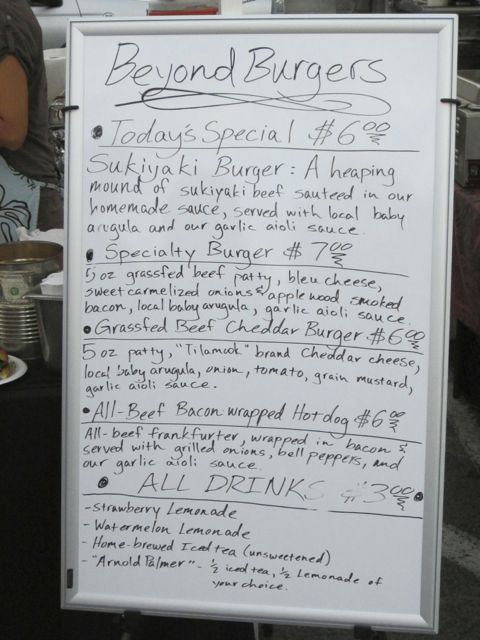 Beyond Burgers
• Today's Special $6.00
Sukiyaki Burger: A heaping
mound of sukiyaki beef sauteed in our
homemade sauce, served with local baby
arugula and our garlic aioli sauce.
• Specialty Burger $7.00
5 oz grassfed beef patty, bleu cheese,
sweet carmelized onions & apple wood smoked
bacon, local baby arugula, garlic aioli sauce.
• Grassfed Beef Cheddar Burger $6.00
5 oz patty, "Tilamook" brand Cheddar cheese,
local baby arugula, onion, tomato, grain mustard,
garlic aioli sauce.
• All-Beef Bacon wrapped Hotdog $6.00
All-beef frankfurter, wrapped in bacon &
served with grilled onions, bell peppers, and
our garlic aioli sauce.
• ALL DRINKS $3.00 •
- Strawberry Lemonade
- Watermelon Lemonade
- Home-brewed Iced tea (unsweetened)
- "Arnold Palmer" - 1/2 iced tea, 1/2 Lemonade of
your choice.